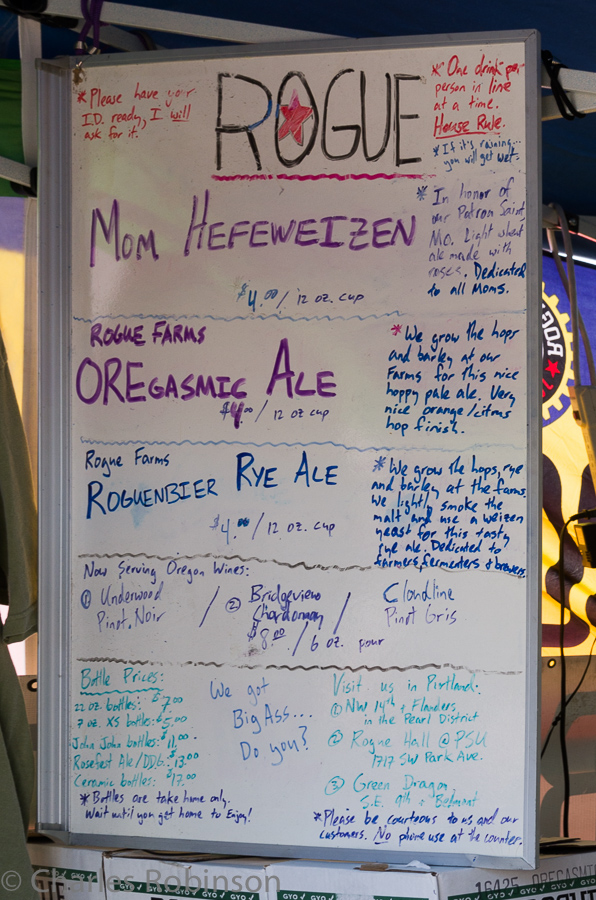 * Please have your
I.D. ready, I will
ask for it.
ROGUE
* One drink per
person in line
at a time.
House Rule.
* If it's raining...
you will get wet.
MOM HEFEWEIZEN
$4.00 / 12 oz. cup
* In honor of
our Patron Saint
Mo. Light wheat
ale made with
roses. Dedicated
to all Moms.
ROGUE FARMS
OREGASMIC ALE
$4.00 / 12 oz cup
* We grow the hops
and barley at our
Farms for this nice
hoppy pale ale. Very
nice orange/citrus
hop finish.
Rogue Farms
ROGUENBIER RYE ALE
$4.00 / 12 oz. cup
* We grow the hops, rye
and barley at the farms,
we lightly smoke the
malt and use a weizen
yeast for this tasty
rye ale. Dedicated to
farmers, fermenters & brewers.
Now Serving Oregon Wines:
① Underwood
Pinot Noir
/ ② Bridgeview
Chardonnay
/ Cloudline
Pinot Gris
$8.00 / 6 oz. pour
Bottle Prices:
22 oz bottles: $7.00
7 oz. XS bottle: $5.00
John John bottles: $11.00
Rosefest Ale/DDG: $13.00
Ceramic bottles: $17.00
* Bottles are take home only.
Wait until you get home to Enjoy!
We got
Big Ass...
Do you?
Visit us in Portland:
① NW 14th & Flanders,
in the Pearl District
② Rogue Hall @ PSU
1717 SW Park Ave.
③ Green Dragon
S.E. 9th & Belmont
* Please be courteous to us and our
customers. No phone use at the counter.
© Charles Robinson
16425 OREGASMIC
GYO GYO GYO GYO